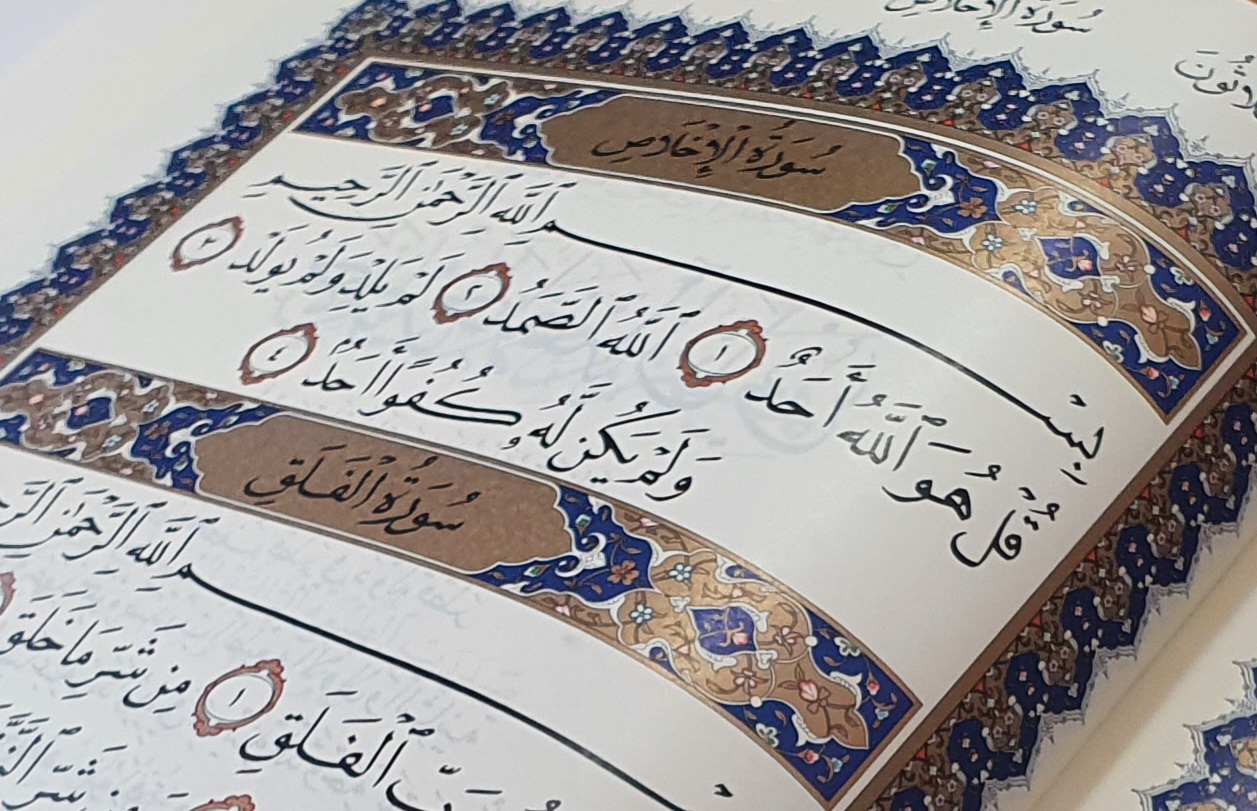 سُورَةُ ٱلْإِخْلَاصِ
سُورَةُ ٱلْإِخْلَاصِ
بِسْمِ ٱللَّهِ ٱلرَّحْمَٰنِ ٱلرَّحِيمِ
قُلْ هُوَ ٱللَّهُ أَحَدٌ ١ ٱللَّهُ ٱلصَّمَدُ ٢ لَمْ يَلِدْ وَلَمْ يُولَدْ ٣
وَلَمْ يَكُن لَّهُۥ كُفُوًا أَحَدٌۢ ٤
سُورَةُ ٱلْفَلَقِ
بِسْمِ ٱللَّهِ ٱلرَّحْمَٰنِ
ٱلْفَلَقِ ١ مِن شَرِّ مَا خَلَقَ